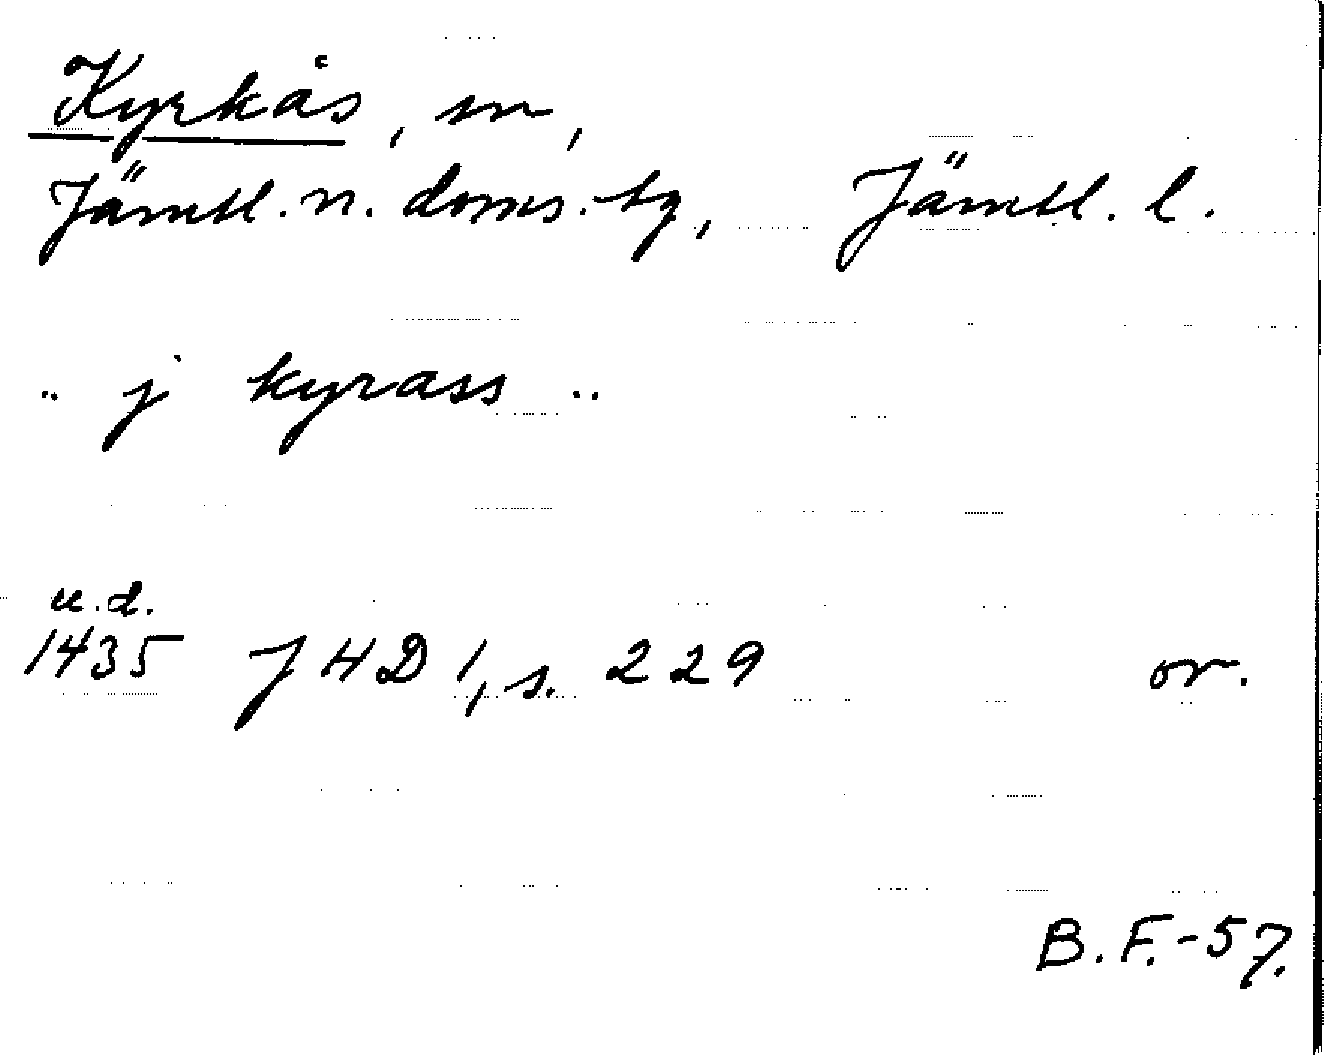 Kyrkås, sn,
Jämtl. n. doms. tg, Jämtl. l.
.. j kyrass ..
u.d.
1435 JHD 1, s. 229 or.
B.F.-57.